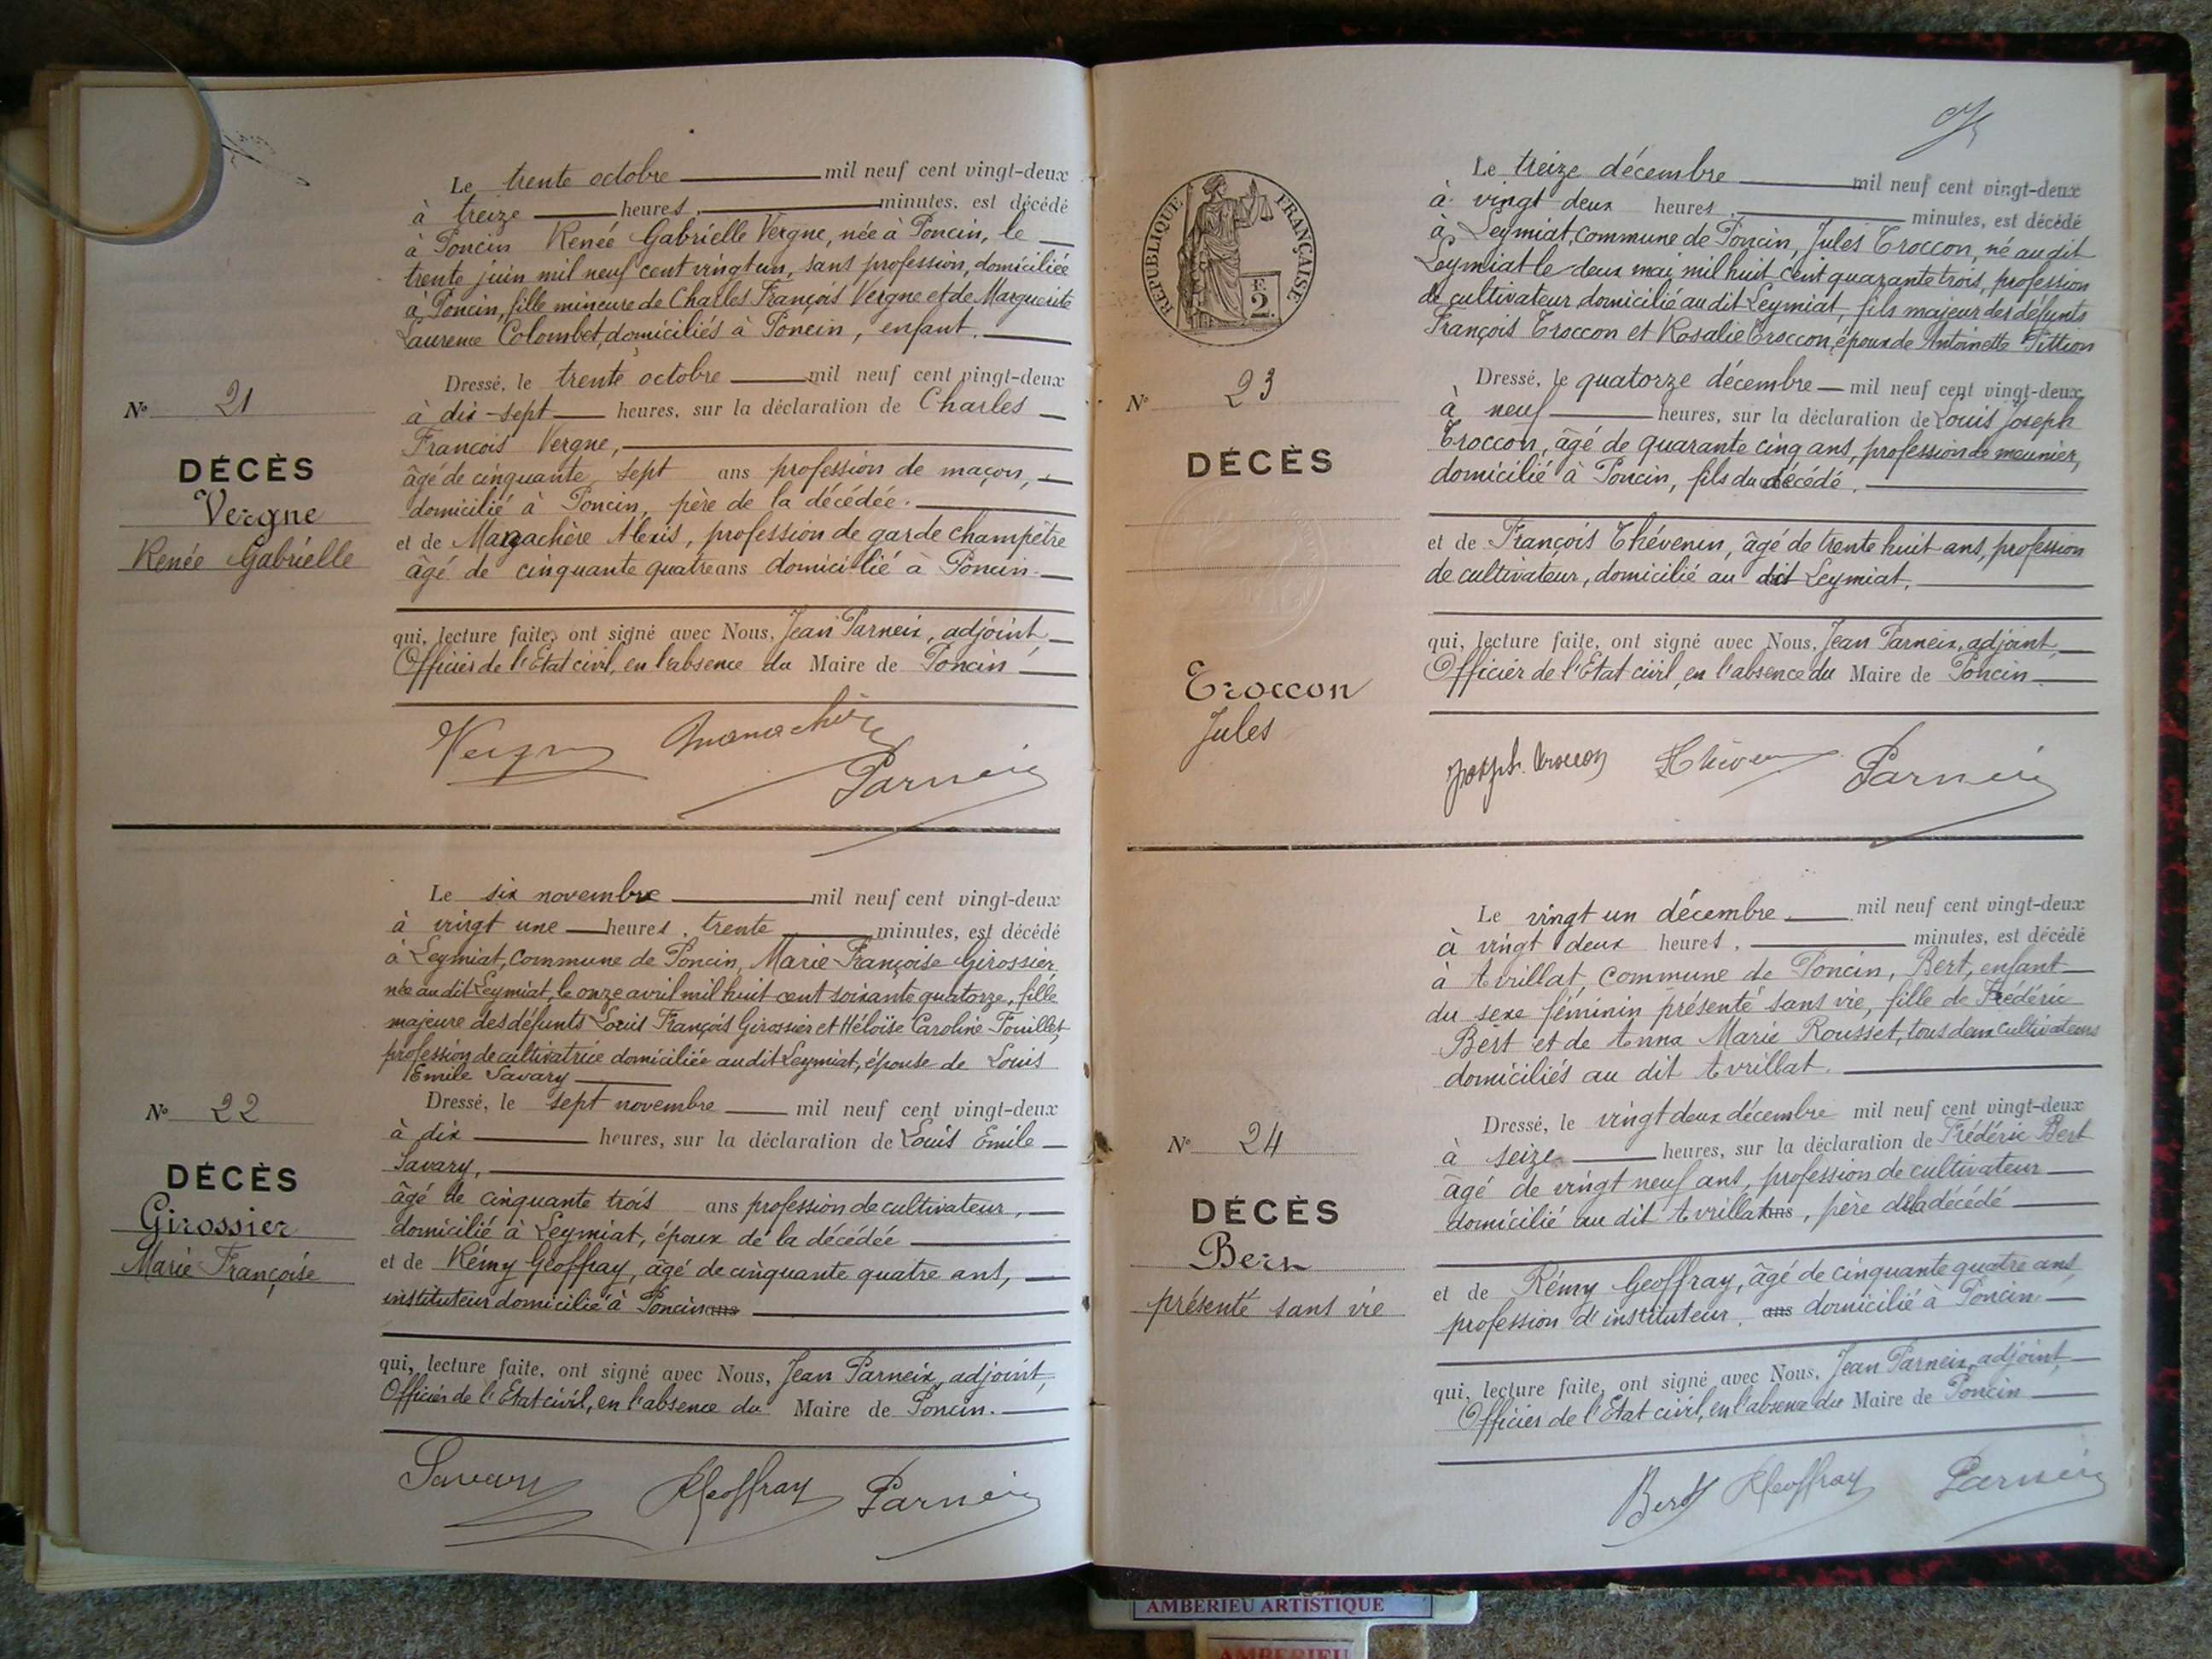 Le trente octobre mil neuf cent vingt-deux
à treize heures, minutes, est décédé
à Poncin Renée Gabrielle Vergne, née à Poncin, le
trente juin mil neuf cent vingt un, sans profession, domiciliée
à Poncin, fille mineure de Charles François Vergne et de Marguerite
Laurence Colombet, domiciliés à Poncin, enfant.
Dressé, le trente octobre mil neuf cent vingt-deux
N° 21
à dix-sept heures, sur la déclaration de Charles
François Vergne,
DÉCÈS
âgé de cinquante sept ans profession de maçon,
Vergne
domicilié à Poncin, père de la décédée.
Renée Gabrielle
et de Alexis, profession de garde champêtre
âgé de cinquante quatre ans domicilié à Poncin.
qui, lecture faite, ont signé avec Nous, Jean Parneix, adjoint,
Officier de l'Etat civil, en l'absence du Maire de Poncin
Vergne
Parneix
Le six novembre mil neuf cent vingt-deux
à vingt une heures, trente minutes, est décédé
à Leymiat, commune de Poncin, Marie Françoise Girossier
née au dit Leymiat, le onze avril mil huit cent soixante quatorze, fille
majeure des défunts Louis François Girossier et Héloïse Caroline Fouillet,
profession de cultivatrice domiciliée au dit Leymiat, épouse de Louis
Emile Savary
N° 22
Dressé, le sept novembre mil neuf cent vingt-deux
à dix heures, sur la déclaration de Louis Emile
Savary,
DÉCÈS
âgé de cinquante trois ans profession de cultivateur,
Girossier
domicilié à Leymiat, époux de la décédée
Marie Françoise
et de Rémy Geoffray, âgé de cinquante quatre ans,
instituteur domicilié à Poncin ans
qui, lecture faite, ont signé avec Nous, Jean Parneix, adjoint,
Officier de l'Etat civil, en l'absence du Maire de Poncin.
Savary RGeoffray Parneix
RÉPUBLIQUE FRANÇAISE
F.
2.
Le treize décembre mil neuf cent vingt-deux
à vingt deux heures, minutes, est décédé
à Leymiat, commune de Poncin, Jules Troccon, né au dit
Leymiat le deux mai mil huit cent quarante trois, profession
de cultivateur domicilié au dit Leymiat, fils majeur des défunts
François Troccon et Rosalie Troccon, époux de Antoinette Pittion
N° 23
Dressé, le quatorze décembre mil neuf cent vingt-deux
à neuf heures, sur la déclaration de Louis Joseph
DÉCÈS
Troccon, âgé de quarante cinq ans, profession de meunier,
domicilié à Poncin, fils du décédé.
et de François Thévenin, âgé de trente huit ans, profession
de cultivateur, domicilié au dit Leymiat.
qui, lecture faite, ont signé avec Nous, Jean Parneix, adjoint,
Troccon
Jules
Officier de l'Etat civil, en l'absence du Maire de Poncin
Joseph Troccon Parneix
Le vingt un décembre mil neuf cent vingt-deux
à vingt deux heures, minutes, est décédé
à Avrillat commune de Poncin, Bert, enfant
du sexe féminin présenté sans vie, fille de Frédéric
Bert et de Anna Marie Rousset, tous deux cultivateurs
domiciliés au dit Avrillat.
N° 24
Dressé, le vingt deux décembre mil neuf cent vingt-deux
à seize heures, sur la déclaration de Frédéric Bert
DÉCÈS
âgé de vingt neuf ans, profession de cultivateur
domicilié au dit Avrillat ans, père de la décédé
Bert
présenté sans vie
et de Rémy Geoffray, âgé de cinquante quatre ans
profession d'instituteur, ans domicilié à Poncin
qui, lecture faite, ont signé avec Nous, Jean Parneix, adjoint,
Officier de l'Etat civil, en l'absence du Maire de Poncin
Bert RGeoffray Parneix
AMBERIEU ARTISTIQUE
AMBERIEU